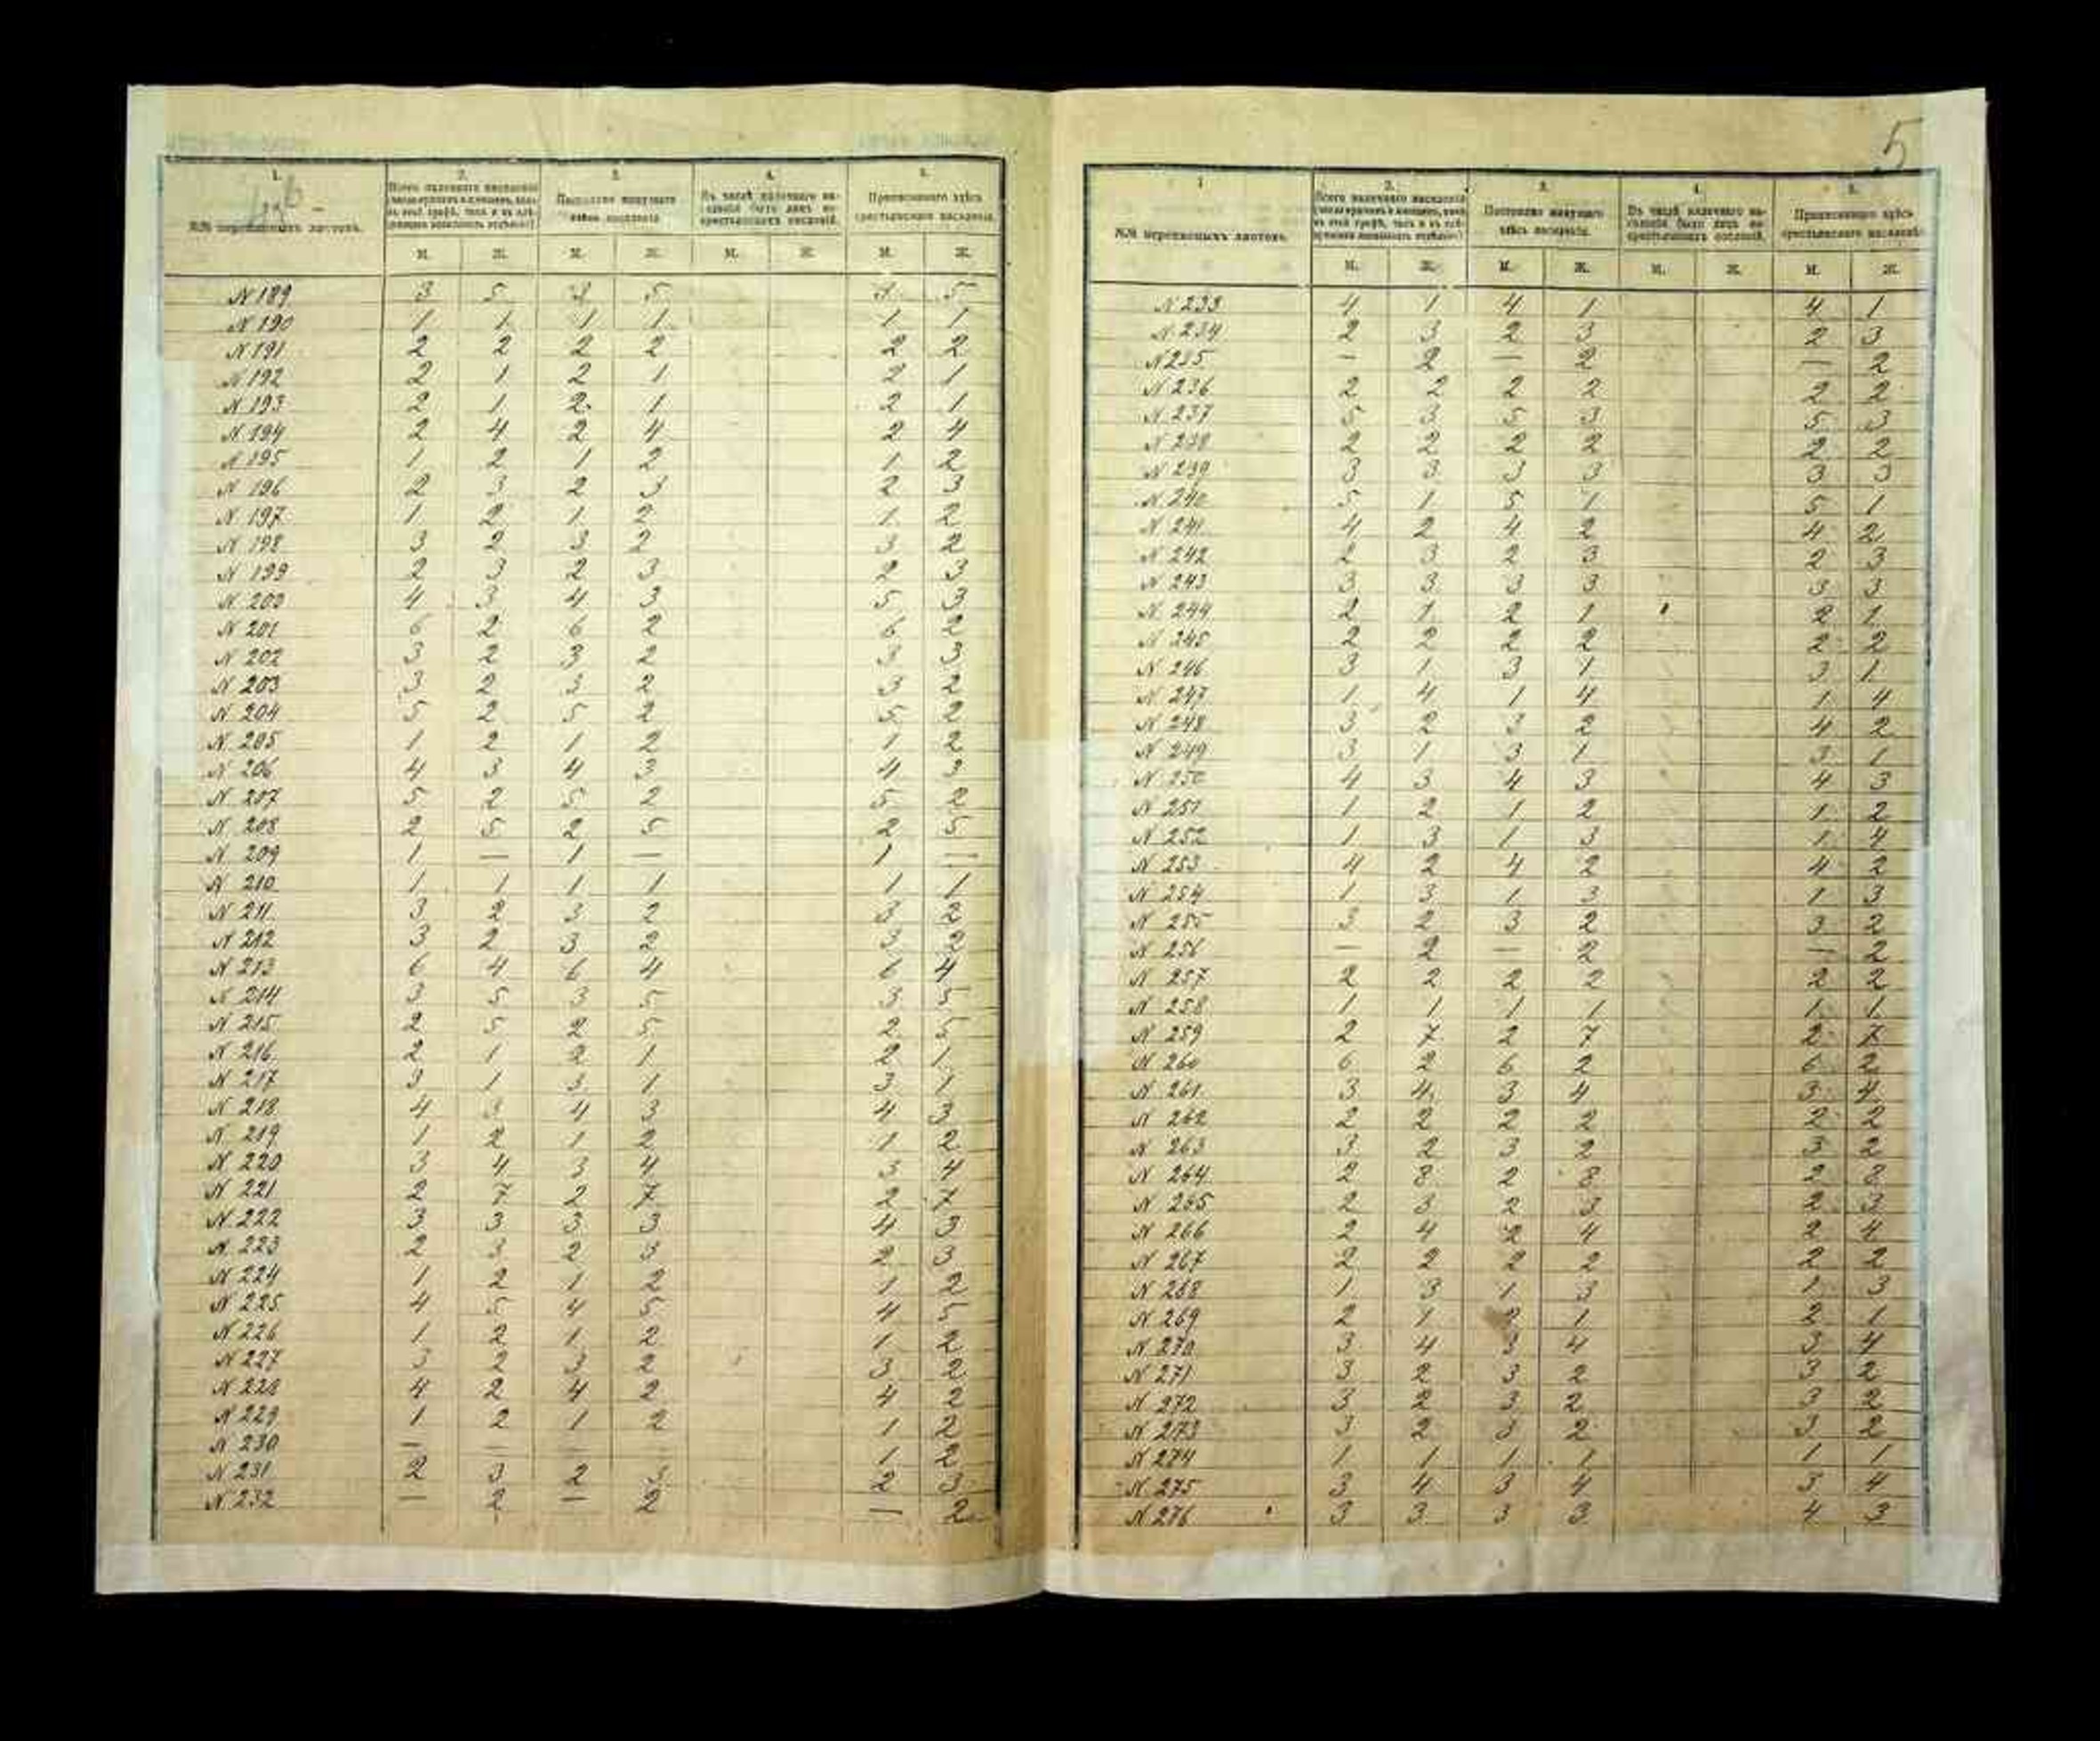 5
1. 2. 3. 4. 5.
№№ переписныхъ листовъ. Всего наличнаго населенія Постоянно живущаго здѣсь населенія Въ числѣ наличнаго населенія было лицъ некрестьянскихъ сословій. Приписаннаго здѣсь крестьянскаго населенія.
М. Ж. М. Ж. М. Ж. М. Ж.
N 189 3 5 3 5 3 5
N 190 1 1 1 1 1 1
N 191 2 2 2 2 2 2
N 192 2 1 2 1 2 1
N 193 2 1 2 1 2 1
N 194 2 4 2 4 2 4
N 195 1 2 1 2 1 2
N 196 2 3 2 3 2 3
N 197 1 2 1 2 1 2
N 198 3 2 3 2 3 2
N 199 2 3 2 3 2 3
N 200 4 3 4 3 5 3
N 201 6 2 6 2 6 2
N 202 3 2 3 2 3 3
N 203 3 2 3 2 3 2
N 204 5 2 5 2 5 2
N 205 1 2 1 2 1 2
N 206 4 3 4 3 4 3
N 207 5 2 5 2 5 2
N 208 2 5 2 5 2 5
N 209 1 — 1 — 1 —
N 210 1 1 1 1 1 1
N 211 3 2 3 2 3 2
N 212 3 2 3 2 3 2
N 213 6 4 6 4 6 4
N 214 3 5 3 5 3 5
N 215 2 5 2 5 2 5
N 216 2 1 2 1 2 1
N 217 3 1 3 1 3 1
N 218 4 3 4 3 4 3
N 219 1 2 1 2 1 2
N 220 3 4 3 4 3 4
N 221 2 7 2 7 2 7
N 222 3 3 3 3 4 3
N 223 2 3 2 3 2 3
N 224 1 2 1 2 1 2
N 225 4 5 4 5 4 5
N 226 1 2 1 2 1 2
N 227 3 2 3 2 3 2
N 228 4 2 4 2 4 2
N 229 1 2 1 2 1 2
N 230 — — — — 1 2
N 231 2 3 2 3 2 3
N 232 — 2 — 2 — 2
1 2. 3. 4. 5.
№№ переписныхъ листовъ. Всего наличнаго населенія Постоянно живущаго здѣсь населенія. Въ числѣ наличнаго населенія было лицъ некрестьянскихъ сословій. Приписаннаго здѣсь крестьянскаго населенія.
М. Ж. М. Ж. М. Ж. М. Ж.
N 233 4 1 4 1 4 1
N 234 2 3 2 3 2 3
N 235 — 2 — 2 — 2
N 236 2 2 2 2 2 2
N 237 5 3 5 3 5 3
N 238 2 2 2 2 2 2
N 239 3 3 3 3 3 3
N 240 5 1 5 1 5 1
N 241 4 2 4 2 4 2
N 242 2 3 2 3 2 3
N 243 3 3 3 3 3 3
N 244 2 1 2 1 2 1
N 245 2 2 2 2 2 2
N 246 3 1 3 1 3 1
N 247 1 4 1 4 1 4
N 248 3 2 3 2 4 2
N 249 3 1 3 1 3 1
N 250 4 3 4 3 4 3
N 251 1 2 1 2 1 2
N 252 1 3 1 3 1 4
N 253 4 2 4 2 4 2
N 254 1 3 1 3 1 3
N 255 3 2 3 2 3 2
N 256 — 2 — 2 — 2
N 257 2 2 2 2 2 2
N 258 1 1 1 1 1 1
N 259 2 7 2 7 2 7
N 260 6 2 6 2 6 2
N 261 3 4 3 4 3 4
N 262 2 2 2 2 2 2
N 263 3 2 3 2 3 2
N 264 2 8 2 8 2 8
N 265 2 3 2 3 2 3
N 266 2 4 2 4 2 4
N 267 2 2 2 2 2 2
N 268 1 3 1 3 1 3
N 269 2 1 2 1 2 1
N 270 3 4 3 4 3 4
N 271 3 2 3 2 3 2
N 272 3 2 3 2 3 2
N 273 3 2 3 2 3 2
N 274 1 1 1 1 1 1
N 275 3 4 3 4 3 4
N 276 3 3 3 3 4 3